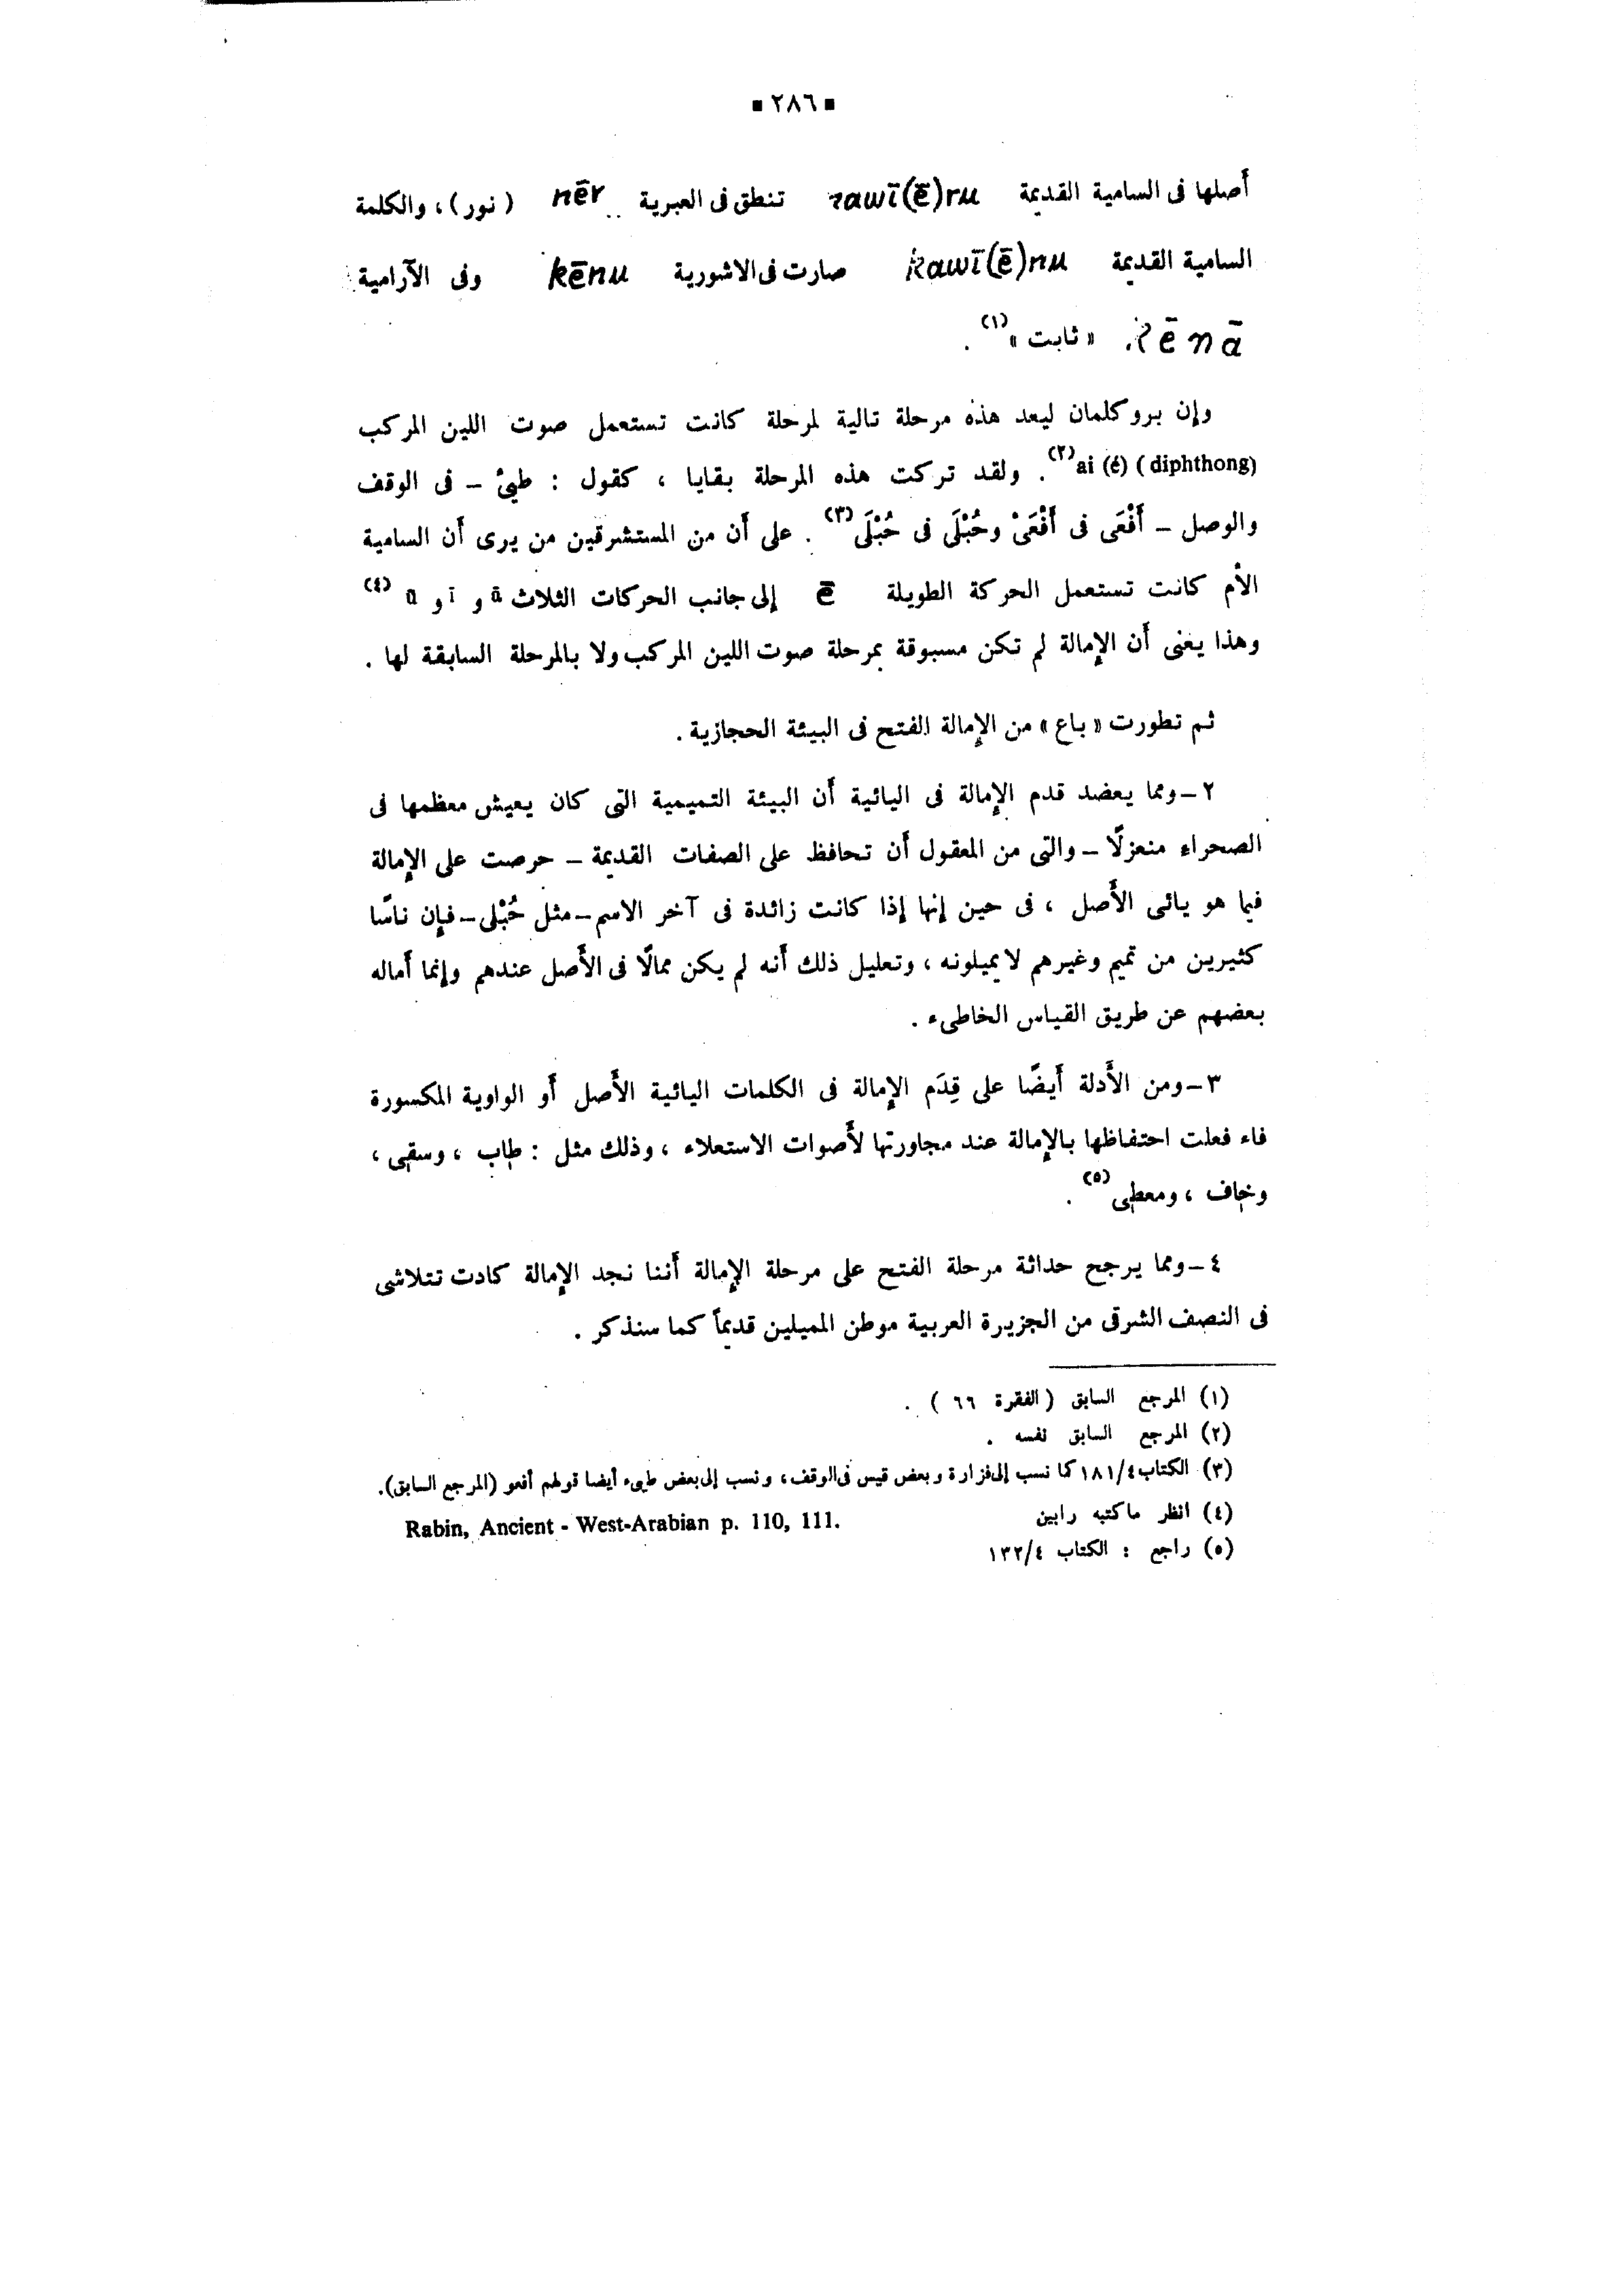 ▪ ٢٨٦ ▪
أصلها فى السامية القديمة nawī(ē)ru تنطق فى العبرية nēr ( نور ) ، والكلمة
السامية القديمة kawī(ē)nu صارت فى الاشورية kēnu وفى الآرامية
kēnā « ثابت »(١) .
وإن بروكلمان ليعد هذه مرحلة تالية لمرحلة كانت تستعمل صوت اللين المركب
(diphthong) ai (é)(٢) . ولقد تركت هذه المرحلة بقايا ، كقول : طيئ – فى الوقف
والوصل – أَفْعَى فى أَفْعَىْ وحُبْلَى فى حُبْلَى(٣) . على أن من المستشرقين من يرى أن السامية
الأم كانت تستعمل الحركة الطويلة ē إلى جانب الحركات الثلاث ā و ī و ū (٤)
وهذا يعنى أن الإمالة لم تكن مسبوقة بمرحلة صوت اللين المركب ولا بالمرحلة السابقة لها .
ثم تطورت « باع » من الإمالة للفتح فى البيئة الحجازية .
٢ – ومما يعضد قدم الإمالة فى اليائية أن البيئة التميمية التى كان يعيش معظمها فى
الصحراء منعزلًا – والتى من المعقول أن تحافظ على الصفات القديمة – حرصت على الإمالة
فيما هو يائى الأصل ، فى حين إنها إذا كانت زائدة فى آخر الاسم – مثل حُبْلى – فإن ناسًا
كثيرين من تميم وغيرهم لا يميلونه ، وتعليل ذلك أنه لم يكن ممالًا فى الأصل عندهم وإنما أماله
بعضهم عن طريق القياس الخاطىء .
٣ – ومن الأدلة أيضًا على قِدَم الإمالة فى الكلمات اليائية الأصل أو الواوية المكسورة
فاء فعلت احتفاظها بالإمالة عند مجاورتها لأصوات الاستعلاء ، وذلك مثل : طاب ، وسقى ،
وخاف ، ومعطى(٥) .
٤ – ومما يرجح حداثة مرحلة الفتح على مرحلة الإمالة أننا نجد الإمالة كادت تتلاشى
فى النصف الشرقى من الجزيرة العربية موطن المميلين قديماً كما سنذكر .
(١) المرجع السابق ( الفقرة ٦٦ ) .
(٢) المرجع السابق نفسه .
(٣) الكتاب ٤/ ١٨١ كما نسب إلى فزارة وبعض قيس فى الوقف ، ونسب إلى بعض طيىء أيضا قولهم أفعو (المرجع السابق).
(٤) انظر ماكتبه رابين Rabin, Ancient - West-Arabian p. 110, 111.
(٥) راجع : الكتاب ٤/ ١٣٢